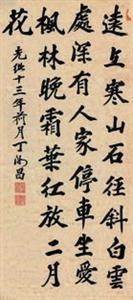 遠上寒山石徑斜白雲
處深有人家停車坐愛
楓林晚霜葉紅放二月
花
光緒十三年荷月丁汝昌